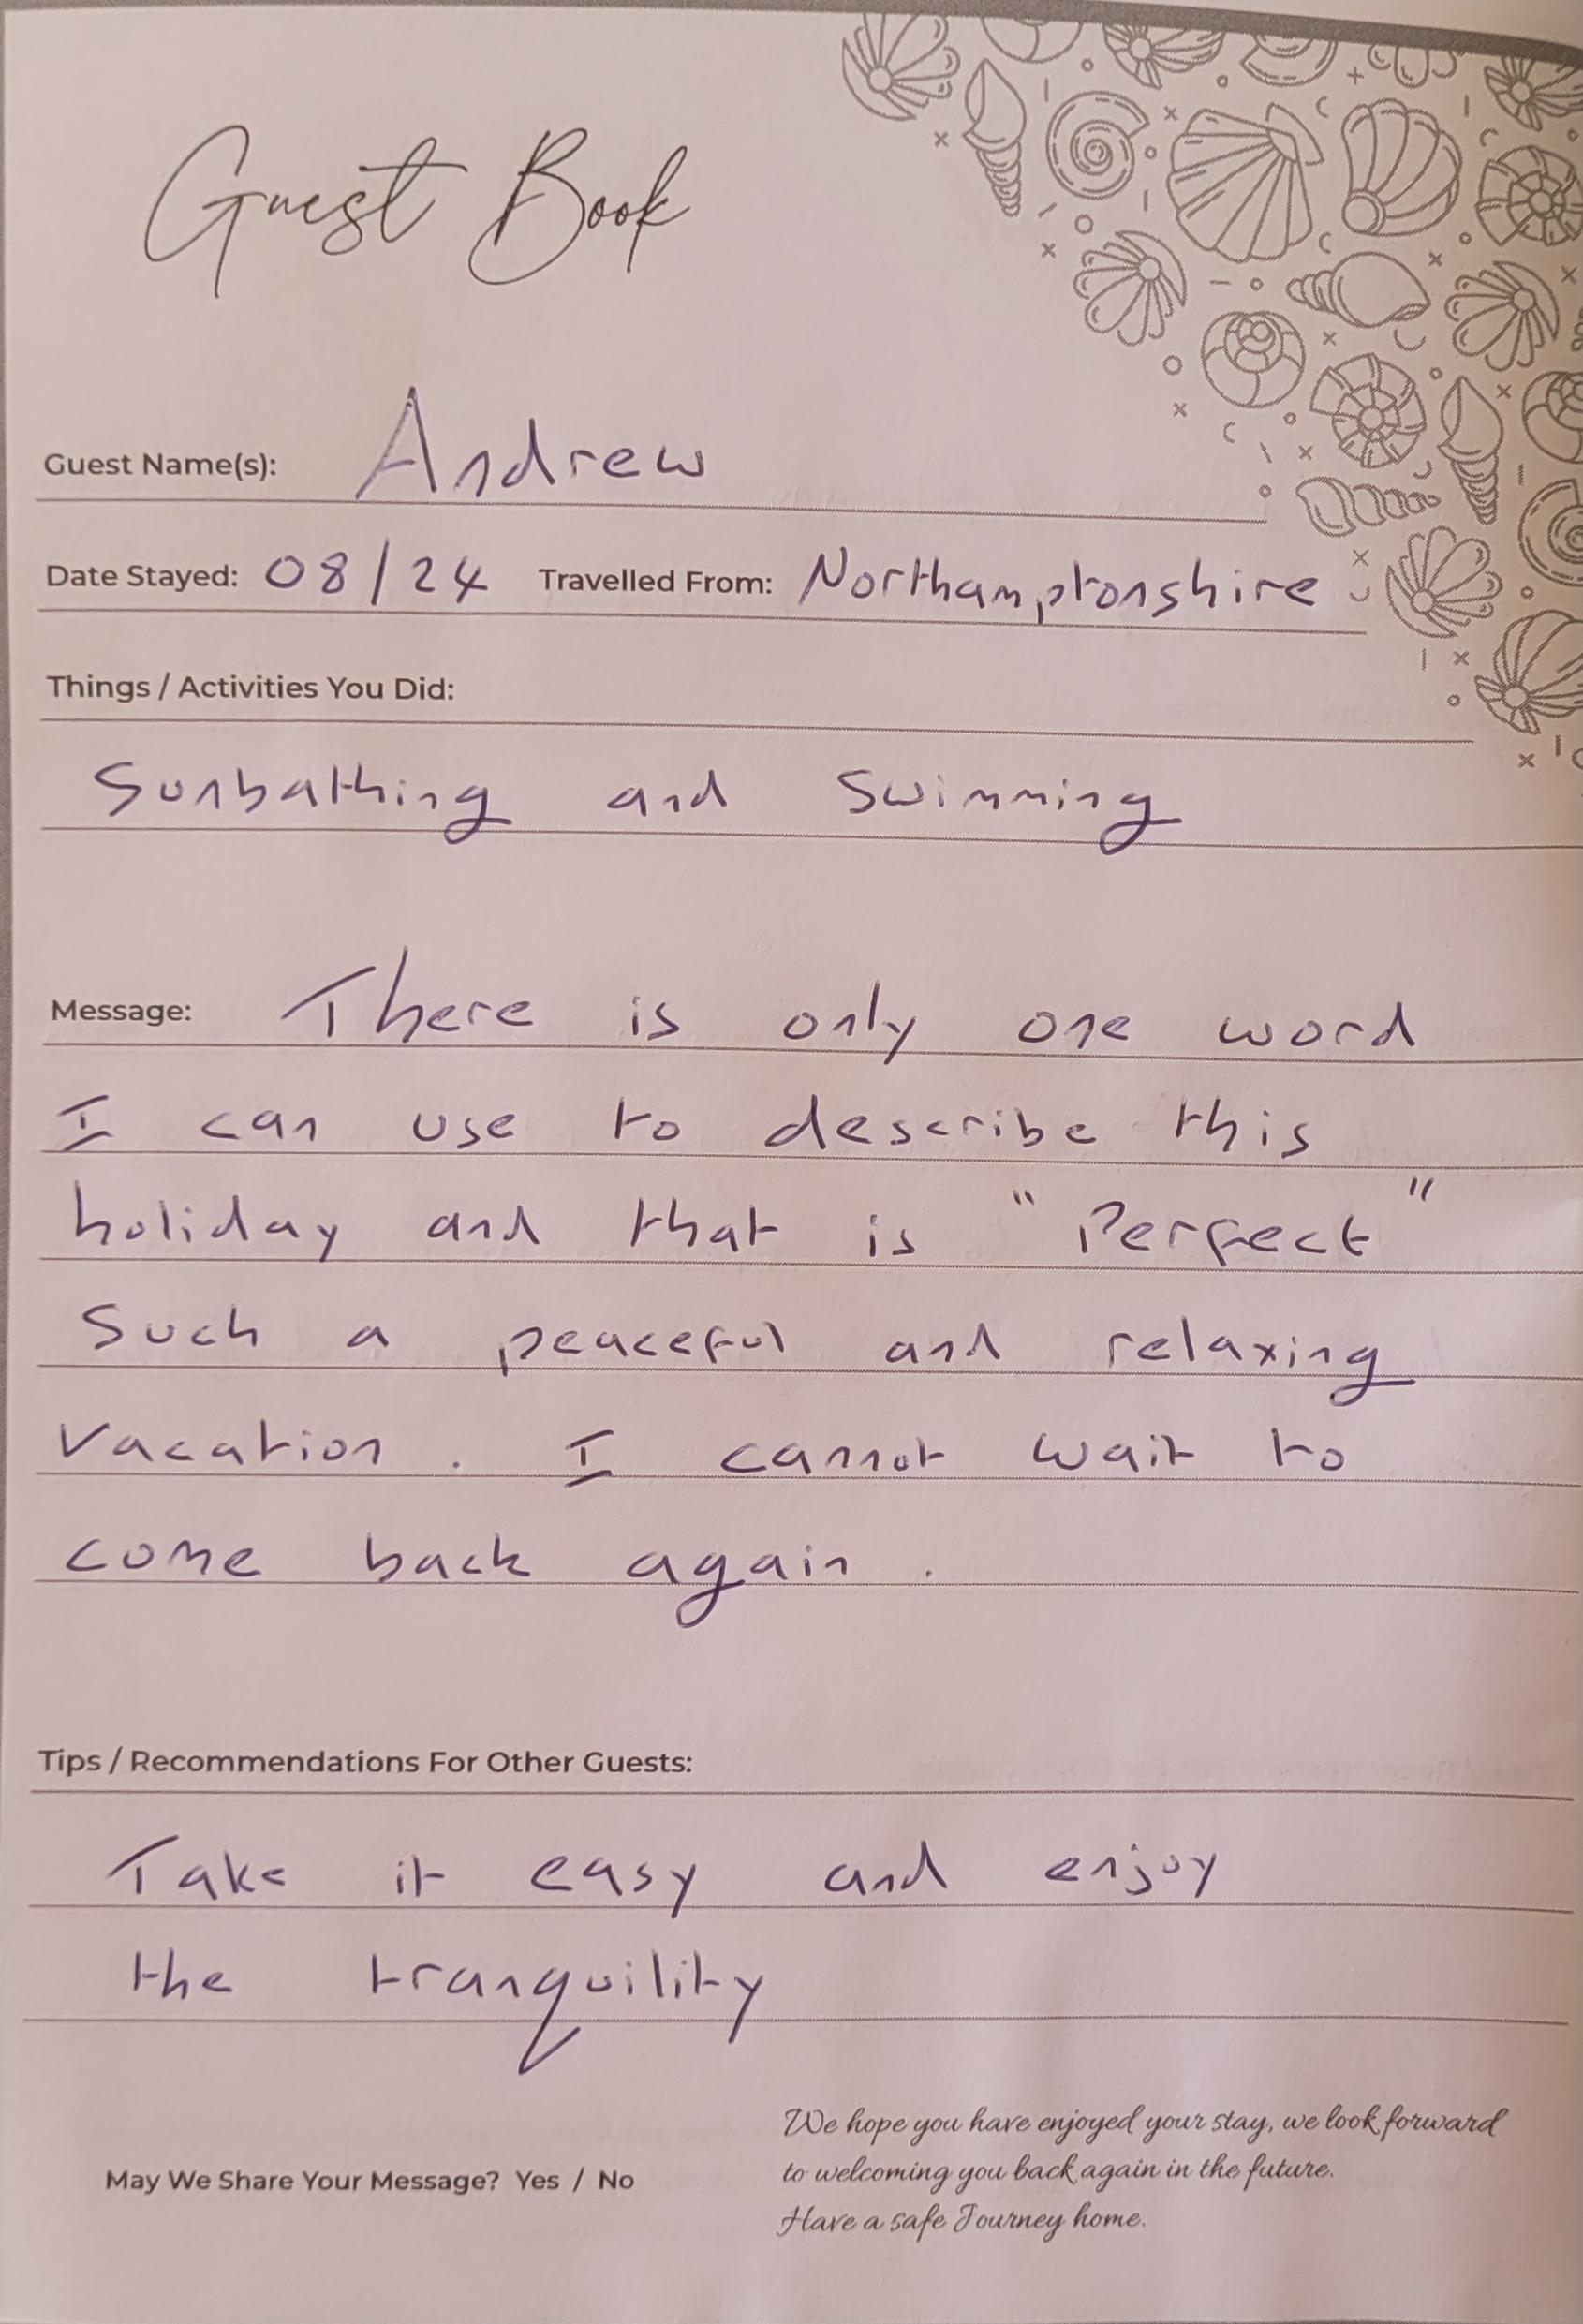 Guest Book
Guest Name(s): Andrew
Date Stayed: 08/24 Travelled From: Northamptonshire
Things / Activities You Did:
Sunbathing and Swimming
Message: There is only one word
I can use to describe this
holiday and that is "Perfect"
Such a peaceful and relaxing
vacation. I cannot wait to
come back again.
Tips / Recommendations For Other Guests:
Take it easy and enjoy
the tranquility
May We Share Your Message? Yes / No
We hope you have enjoyed your stay, we look forward
to welcoming you back again in the future.
Have a safe Journey home.